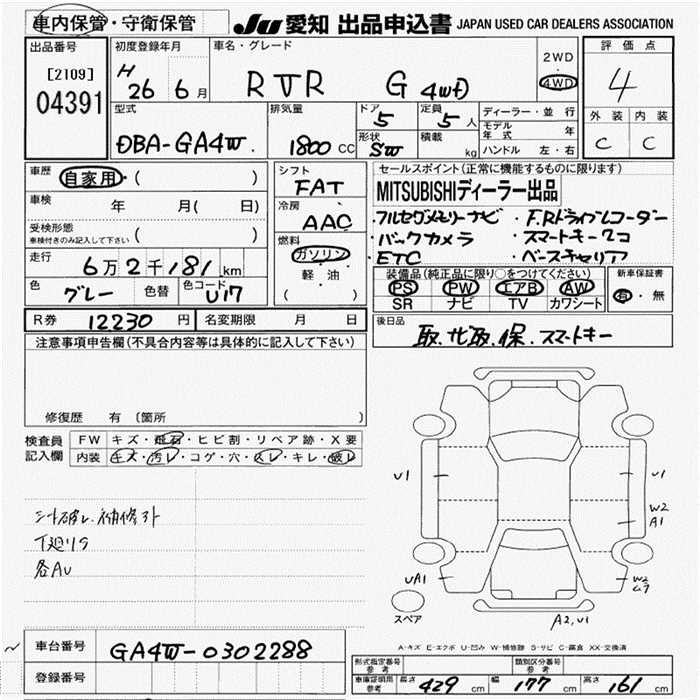 車内保管・守衛保管
JU 愛知 出品申込書 JAPAN USED CAR DEALERS ASSOCIATION
出品番号
[2109]
04391
初度登録年月
H 26 6月
車名・グレード
RVR G 4WD
2WD
・
4WD
評価点
4
外装 内装
C C
型式
DBA-GA4W.
排気量
1800 CC
ドア
5
形状
SW
定員
5人
積載
kg
ディーラー・並行
モデル年式 年
ハンドル 左・右
車歴
自家用・( )
車検 年 月( 日)
受検形態
車検付きのみ記入して下さい ( )
走行
6万2千181km
色
グレー 色替
色コード
U17
シフト
FAT
冷房
AAC
燃料
ガソリン
・
軽・油
( )
セールスポイント(正常に機能するものに限ります)
MITSUBISHIディーラー出品
・フルセグメモリーナビ ・F,Rドライブレコーダー
・バックカメラ ・スマートキー2コ
・ETC ・ベースキャリア
装備品(純正品に限り○をつけてください)
PS PW エアB AW
SR ナビ TV カワシート
新車保証書
有・無
R券 12230円
名変期限 月 日
後日品
取、記取、保、スマートキー
注意事項申告欄(不具合内容等は具体的に記入して下さい)
修復歴 有 〔箇所 〕
検査員
記入欄
FW キズ・飛石・ヒビ割・リペア跡・X要
内装 キズ・汚レ・コゲ・穴・スレ・キレ・破レ
シート破レ、補修跡
下廻りS
各AU
U1 U1
W2
A1
UA1 W2
A2,U1
スペア
A-キズ E-エクボ U-凹み W-補修跡 S-サビ C-腐食 XX-交換済
車台番号 GA4W-0302288
登録番号
形式指定番号
参考
類別区分番号
参考
車庫証明用
参考
長さ 429 cm 幅 177 cm 高さ 161 cm